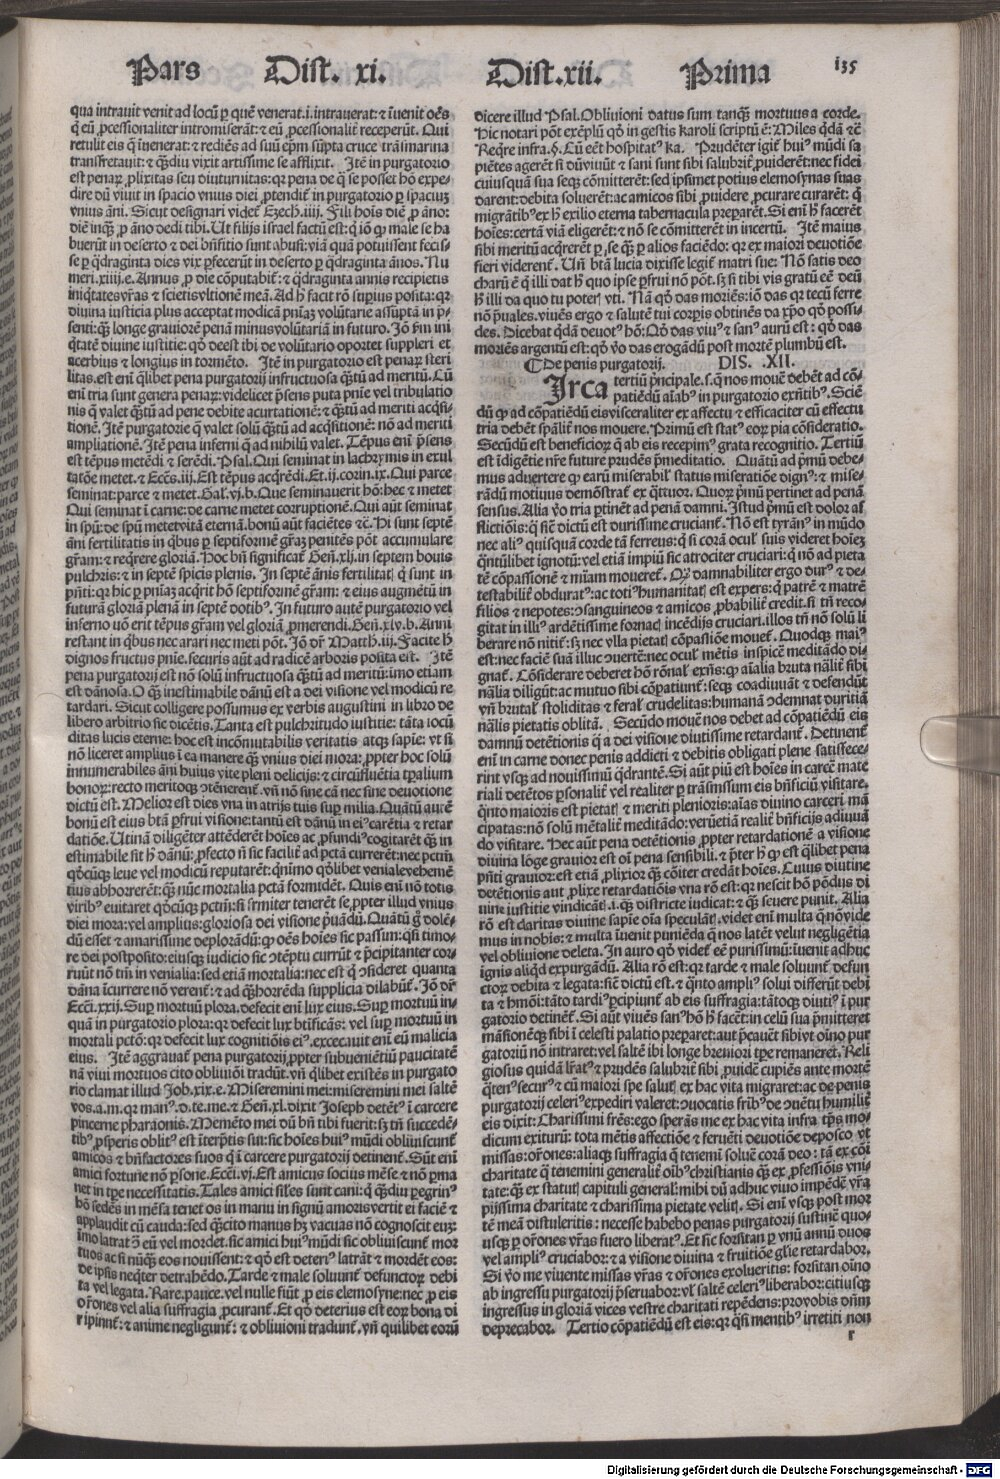 Pars Dist. xi.
Dist.xii. Prima 135
qua intrauit venit ad locū ꝑ quē venerat.i.intrauerat: ⁊ īuenit oēs
q̄ eū ꝓcessionaliter intromiserāt: ⁊ eū ꝓcessionalit̄ receperūt. Qui
retulit eis q̄ īuenerat: ⁊ rediēs ad suū ep̄m sūpta cruce trāsmarina
transfretauit: ⁊ qᷓdiu vixit artissime se afflixit. Itē in purgatorio
est penaꝝ ꝓlixitas seu diuturnitas: qꝛ pena de q̄ se posset hō expe-
dire dū viuit in spacio vnius diei ꝓtendit̄ in purgatorio ꝑ spaciuꝫ
vnius āni. Sicut designari videt̄ Ezech.iiij. Fili hoīs diē ꝓ āno:
diē inqᷓ ꝓ āno dedi tibi. Ut filijs israel factū est: q̄ iō qꝫ male se ha
buerūt in deserto ⁊ dei bn̄fitio sunt abusi: viā quā potuissent fecis-
se ꝑ qᷓdraginta dies vix ꝑfecerūt in deserto ꝑ qᷓdraginta ānos. Nu
meri.xiiij.e. Annus ꝓ die cōputabit̄: ⁊ qᷓdraginta annis recipietis
iniqͥtates vr̄as ⁊ scietis vltionē meā. Ad h̄ facit rō supius posita: qꝛ
diuina iusticia plus acceptat modicā pn̄iaꝫ volūtarie assūptā in p̄-
senti: qᷓꝫ longe grauiorē penā minus volūtariā in futuro. Iō ẜm ini
qͥtatē diuine iustitie: qd̄ deest ibi de volūtario oportet suppleri et
acerbius ⁊ longius in tormēto. Itē in purgatorio est penaꝝ steri
litas. est eni q̄libet pena purgatorij infructuosa qᷓꝫtū ad meritū. Cū
eni tria sunt genera penaꝝ: videlicet p̄sens puta pnīe vel tribulatio
nis q̄ valet qᷓꝫtū ad pene debite acurtationē: ⁊ qᷓꝫtū ad meriti acqͥsi-
tionē. Itē purgatorie q̄ valet solū qᷓꝫtū ad acqͥsitionē: nō ad meriti
ampliationē. Itē pena inferni q̄ ad nihilū valet. Tēpus eni p̄sens
est tēpus metēdi ⁊ serēdi. Psal. Qui seminat in lachrymis in exul
tatōe metet. ⁊ Eccs̄.iij. Est tēpus acqͥrēdi. Et.ij.corin.ix. Qui parce
seminat: parce ⁊ metet. Gal.vj.b. Que seminauerit hō: hec ⁊ metet
Qui seminat ī carne: de carne metet corruptionē. Qui aūt seminat
in spū: de spū metet vitā eternā. bonū aūt faciētes ⁊c̄. Hi sunt septē
āni fertilitatis in qͥbus ꝑ septiformē gr̄aꝫ penitēs pōt accumulare
gr̄am: ⁊ reqͥrere gloriā. Hoc bn̄ significat̄ Geñ.xlj. in septem bouis
pulchris: ⁊ in septē spicis plenis. In septē ānis fertilitatꝭ q̄ sunt in
pn̄ti: qꝛ hic ꝑ pn̄iaꝫ acqͥrit hō septiformē gr̄am: ⁊ eius augmētū in
futurā gloriā plenā in septē dotibꝰ. In futuro autē purgatorio vel
inferno uō erit tēpus gr̄am vel gloriā ꝓmerendi. Geñ.xlv.b. Anni
restant in qͥbus nec arari nec meti pōt. Iō dr̄ Matth.iij. Facite h̄
dignos fructus pnīe. securis aūt ad radicē arboris posita est. Itē
pena purgatorij est nō solū infructuosa qᷓꝫtū ad meritū: imo etiam
est dānosa. O qᷓꝫ inestimabile dānū est a dei visione vel modicū re
tardari. Sicut colligere possumus ex verbis augustini in libro de
libero arbitrio sic dicētis. Tanta est pulchritudo iustitie: tāta iocū
ditas lucis eterne: hoc est incōmutabilis veritatis atqꝫ sapie: vt si
nō liceret amplius ī ea manere qᷓꝫ vnius diei mora: ꝓpter hoc solū
innumerabiles āni huius vite pleni delicijs: ⁊ circūfluētia tꝑalium
bonoꝝ: recto meritoqꝫ ↄtēnerent̄. vn̄ nō sine cā nec sine deuotione
dictū est. Melior est dies vna in atrijs tuis suꝑ milia. Quātū autē
bonū est eius btā ꝑfrui visione: tantū est dānū in eiꝰ carētia ⁊ retar
datiōe. Utinā diligēter attēderēt hoīes ac ꝓfundiꝰ cogitarēt qᷓꝫ in
estimabile sit h̄ dānū: ꝓfecto n̄ sic facilit̄ ad pctā currerēt: nec pctm̄
qd̄cūqꝫ leue vel modicū reputarēt: qͥnimo qd̄libet veniale vehemē
tius abhorrerēt: qᷓꝫ nūc mortalia pctā formidēt. Quis eni nō totis
viribꝰ euitaret qd̄cūqꝫ pctū: si firmiter teneret se ꝓpter illud vnius
diei mora: vel amplius: gloriosa dei visione p̄uādū. Quātū g̊ dolē-
dū esset ⁊ amarissime deplorādū: qꝫ oēs hoīes sic passim: qͣsi timo-
re dei postposito: eiusqꝫ iudicio sic ↄtēptu currūt ⁊ p̄cipitanter cor-
ruūt nō tm̄ in venialia: sed etiā mortalia: nec est q̄ ↄsideret quanta
dāna īcurrere nō verent̄: ⁊ ad qᷓꝫ horrēda supplicia dilabūt̄. Iō dr̄
Ecci.xxij. Suꝑ mortuū plora. defecit eni lux eius. Suꝑ mortuū in-
quā in purgatorio plora: qꝛ defecit lux btīficās: vel suꝑ mortuū in
mortali pctō: qꝛ defecit lux cognitiōis eiꝰ. excecauit eni eū malicia
eius. Itē aggrauat̄ pena purgatorij ꝓpter subueniētiū paucitatē
nā viui mortuos cito obliuiōi tradūt. vn̄ q̄libet existēs in purgato
rio clamat illud Job.xix.e. Miseremini mei: miseremini mei saltē
vos.a.m.qꝛ manꝰ.d.te.me. ⁊ Geñ.xl. dixit Joseph detētꝰ ī carcere
pincerne pharaonis. Memēto mei dū bn̄ tibi fuerit: sꝫ tn̄ succedē-
tibꝰ ꝓsperis oblitꝰ est īterp̄tis sui: sic hoīes huiꝰ mūdi obliuiscunt̄
amicos ⁊ bn̄factores suos q̄ ī carcere purgatorij detinent̄. Sūt eni
amici fortune nō ꝑsone. Ecci.vj. Est amicus socius mēse: ⁊ nō ꝑma
net in tꝑe necessitatis. Tales amici siles sunt cani: q̄ qᷓꝫdiu ꝑegrinꝰ
hō sedēs in mēsa tenet os in manu in signū amoris vertit ei faciē ⁊
applaudit cū cauda: sed qᷓꝫcito manus hꝫ vacuas nō cognoscit euꝫ:
īmo latrat ↄ̄ eū vel mordet. sic amici huiꝰ mūdi sic obliuiscunt̄ mor
tuos ac si nūqᷓꝫ eos nouissent: ⁊ qd̄ est deteriꝰ latrāt ⁊ mordēt eos:
de ipsis neqͥter detrahēdo. Tarde ⁊ male soluunt̄ defunctoꝝ debi
ta vel legata. Rare. pauce. vel nulle fiūt ꝓ eis elemosyne: nec ꝓ eis
or̄ones vel alia suffragia ꝓcurant̄. Et qd̄ deterius est eoꝝ bona di
ripiunt̄: ⁊ anime negligunt̄: ⁊ obliuioni tradunt̄. vn̄ quilibet eorū
dicere illud Psal. Obliuioni datus sum tanqᷓꝫ mortuus a corde.
Hic notari pōt exēplū qd̄ in gestis karoli scriptū ē: Miles qͥdā ⁊c̄
Reqͥre infra.ḡ. Cū eēt hospitatꝰ ka. Prudēter igit̄ huiꝰ mūdi sa
piētes agerēt si dū viuūt ⁊ sani sunt sibi salubrit̄ ꝓuiderēt: nec fidei
cuiusquā sua seqꝫ cōmitterēt: sed ipsimet potius elemosynas suas
darent: debita soluerēt: ac amicos sibi ꝓuidere ꝓcurare curarēt: q̄
migrātibꝰ ex h̄ exilio eterna tabernacula p̄parēt. Si eni h̄ facerēt
hoīes: certā viā eligerēt: ⁊ nō se cōmitterēt in incertū. Itē maius
sibi meritū acqͥrerēt ꝑ se qᷓꝫ ꝑ alios faciēdo: qꝛ ex maiori deuotiōe
fieri viderent̄. Un̄ btā lucia dixisse legit̄ matri sue: Nō satis deo
charū ē q̄ illi dat h̄ quo ipse ꝑfrui nō pōt. sꝫ si tibi vis gratū eē deū
h̄ illi da quo tu poterꝭ vti. Nā qd̄ das moriēs: iō das qꝛ tecū ferre
nō p̄uales. viuēs ergo ⁊ salutē tui corꝑis obtinēs da xp̄o qd̄ possi-
des. Dicebat qͥdā deuotꝰ hō: Qd̄ das viuꝰ ⁊ sanꝰ aurū est: qd̄ das
moriēs argentū est: qd̄ v̄o das erogādū post mortē plumbū est.
⸿ De penis purgatorij. DIS. XII.
Irca tertiū p̄ncipale.s.q̄ nos mouē debēt ad cō-
patiēdū aīabꝰ in purgatorio exn̄tibꝰ. Sciē
dū qꝫ ad cōpatiēdū eis visceraliter ex affectu ⁊ efficaciter cū effectu
tria debēt spālit̄ nos mouere. Primū est statꝰ eoꝝ pia cōsideratio.
Secūdū est beneficioꝝ q̄ ab eis recepimꝰ grata recognitio. Tertiū
est īdigētie nr̄e future prudēs p̄meditatio. Quātū ad p̄mū debe-
mus aduertere qꝫ earū miserabilꝭ status miseratiōe dignꝰ: ⁊ mise-
rādū motiuus demōstrat̄ ex qͣttuor. Quoꝝ p̄mū pertinet ad penā
sensus. Alia v̄o tria ꝑtinēt ad penā damni. Istud p̄mū est dolor af
flictiōis: q̄ sic̄ dictū est durissime cruciant̄. Nō est tyrānꝰ in mūdo
nec aliꝰ quisquā corde tā ferreus: q̄ si corā oculꝭ suis videret hoīeꝫ
qͣntūlibet ignotū: vel etiā impiū sic atrociter cruciari: q̄ nō ad pieta
tē cōpassionē ⁊ mīam moueret̄. Qꝫ damnabiliter ergo durꝰ ⁊ de-
testabilit̄ obduratꝰ: ac totiꝰ humanitatꝭ est expers: q̄ patrē ⁊ matrē
filios ⁊ nepotes: ↄsanguineos ⁊ amicos ꝓbabilit̄ credit. si tn̄ reco-
gitat in illiꝰ ardētissime fornacꝭ incēdijs cruciari. illos tn̄ nō solū li
berare nō nitit̄: sꝫ nec vlla pietatꝭ cōpassiōe mouet̄. Quodqꝫ maiꝰ
est: nec faciē suā illuc ↄuertē: nec oculꝭ mētis inspicē meditādo di-
gnat̄. Cōsiderare deberet hō rōnalꝭ exn̄s: qꝫ aīalia bruta nālit̄ sibi
nālia diligūt: ac mutuo sibi cōpatiunt̄: seqꝫ coadiuuāt ⁊ defendūt
vn̄ brutalꝭ stoliditas ⁊ feralꝭ crudelitas: humanā ↄdemnat duritiā
nālis pietatis oblitā. Secūdo mouē nos debet ad cōpatiēdū eis
damnū detētionis q̄ a dei visione diutissime retardant̄. Detinent̄
eni in carcere donec penis addicti ⁊ debitis obligati plene satisfece-
rint vsqꝫ ad nouissimū qͣdrantē. Si aūt piū est hoīes in carcē mate
riali detētos ꝑsonalit̄ vel realiter ꝑ trāsmissum eis bn̄ficiū visitare.
qͣnto maioris est pietatꝭ ⁊ meriti plenioris: aīas diuino carceri mā
cipatas: nō solū mētalit̄ meditādo: verūetiā realit̄ bn̄ficijs adiuuā
do visitare. Hec aūt pena detētionis ꝓpter retardationē a visione
diuina lōge grauior est oī pena sensibili. ⁊ p̄ter h̄ qꝫ est q̄libet pena
pn̄ti grauior: est etiā ꝓlixior qᷓꝫ cōiter credāt hoīes. Cuius diutine
detētionis aut ꝓlixe retardatiōis vna rō est: qꝛ nescit hō pōdus di
uine iustitie vindicātꝭ.i.qᷓꝫ districte iudicat: ⁊ qᷓꝫ seuere punit. Alia
rō est claritas diuine sapīe oīa speculātꝭ. videt eni multa q̄ nō vide
mus in nobis: ⁊ multa īuenit puniēda q̄ nos latēt velut negligētia
vel obliuione deleta. In auro qd̄ videt̄ eē purissimū: īuenit adhuc
ignis aliqͥd expurgādū. Alia rō est: qꝛ tarde ⁊ male soluunt̄ defun
ctoꝝ debita ⁊ legata: sic̄ dictū est. ⁊ qͣnto ampliꝰ solui differūt debi
ta ⁊ hmōi: tāto tardiꝰ ꝑcipiunt̄ ab eis suffragia: tātoqꝫ diutiꝰ ī pur
gatorio detinent̄. Si aūt viuēs sanꝰ hō h̄ facēt: in celū sua p̄mitteret
māsionēqꝫ sibi ī celesti palatio p̄pararet: aut p̄cauēt sibi vt oīno pur
gatoriū nō intraret: vel saltē ibi longe breuiori tꝑe remaneret. Reli
giosus quidā lr̄atꝰ ⁊ prudēs salubrit̄ sibi ꝓuidē cupiēs ante mortē
qͣtenꝰ securꝰ ⁊ cū maiori spe salutꝭ ex hac vita migraret: ac de penis
purgatorij celeriꝰ expediri valeret: ↄuocatis fr̄ibꝰ de ↄuētu humilit̄
eis dixit: Charissimi frēs: ego sperās me ex hac vita infra tꝑs mo-
dicum exiturū: tota mētis affectiōe ⁊ feruēti deuotiōe deposco vt
missas: or̄ones: aliaqꝫ suffragia q̄ tenemī soluē corā deo: tā ex cōi
charitate q̄ tenemini generalit̄ oībꝰ christianis qᷓꝫ ex ꝓfessiōis vni-
tate: qᷓꝫ ex statutꝭ capituli generalꝭ: mihi dū adhuc viuo impēdē vr̄a
pijssima charitate ⁊ charissima pietate velitꝭ. Si eni vsqꝫ post mor
tē meā distuleritis: necesse habebo penas purgatorij sustinē quo-
usqꝫ ꝑ or̄ones vr̄as fuero liberatꝰ. Et sic forsitan ꝑ vnū annū duos
vel ampliꝰ cruciabor: ⁊ a visione diuina ⁊ fruitiōe gl̄ie retardabor.
Si v̄o me viuente missas vr̄as ⁊ or̄ones exolueritis: forsitan oīno
ab ingressu purgatorij p̄seruabor: vl̓ saltē celeriꝰ liberabor: citiusqꝫ
ingressus in gloriā vices vestre charitati repēdens: pro vobis dn̄m
deprecabor. Tertio cōpatiēdū est eis: qꝛ qͣsi mentibꝰ irretiti non
r
Digitalisierung gefördert durch die Deutsche Forschungsgemeinschaft - DFG